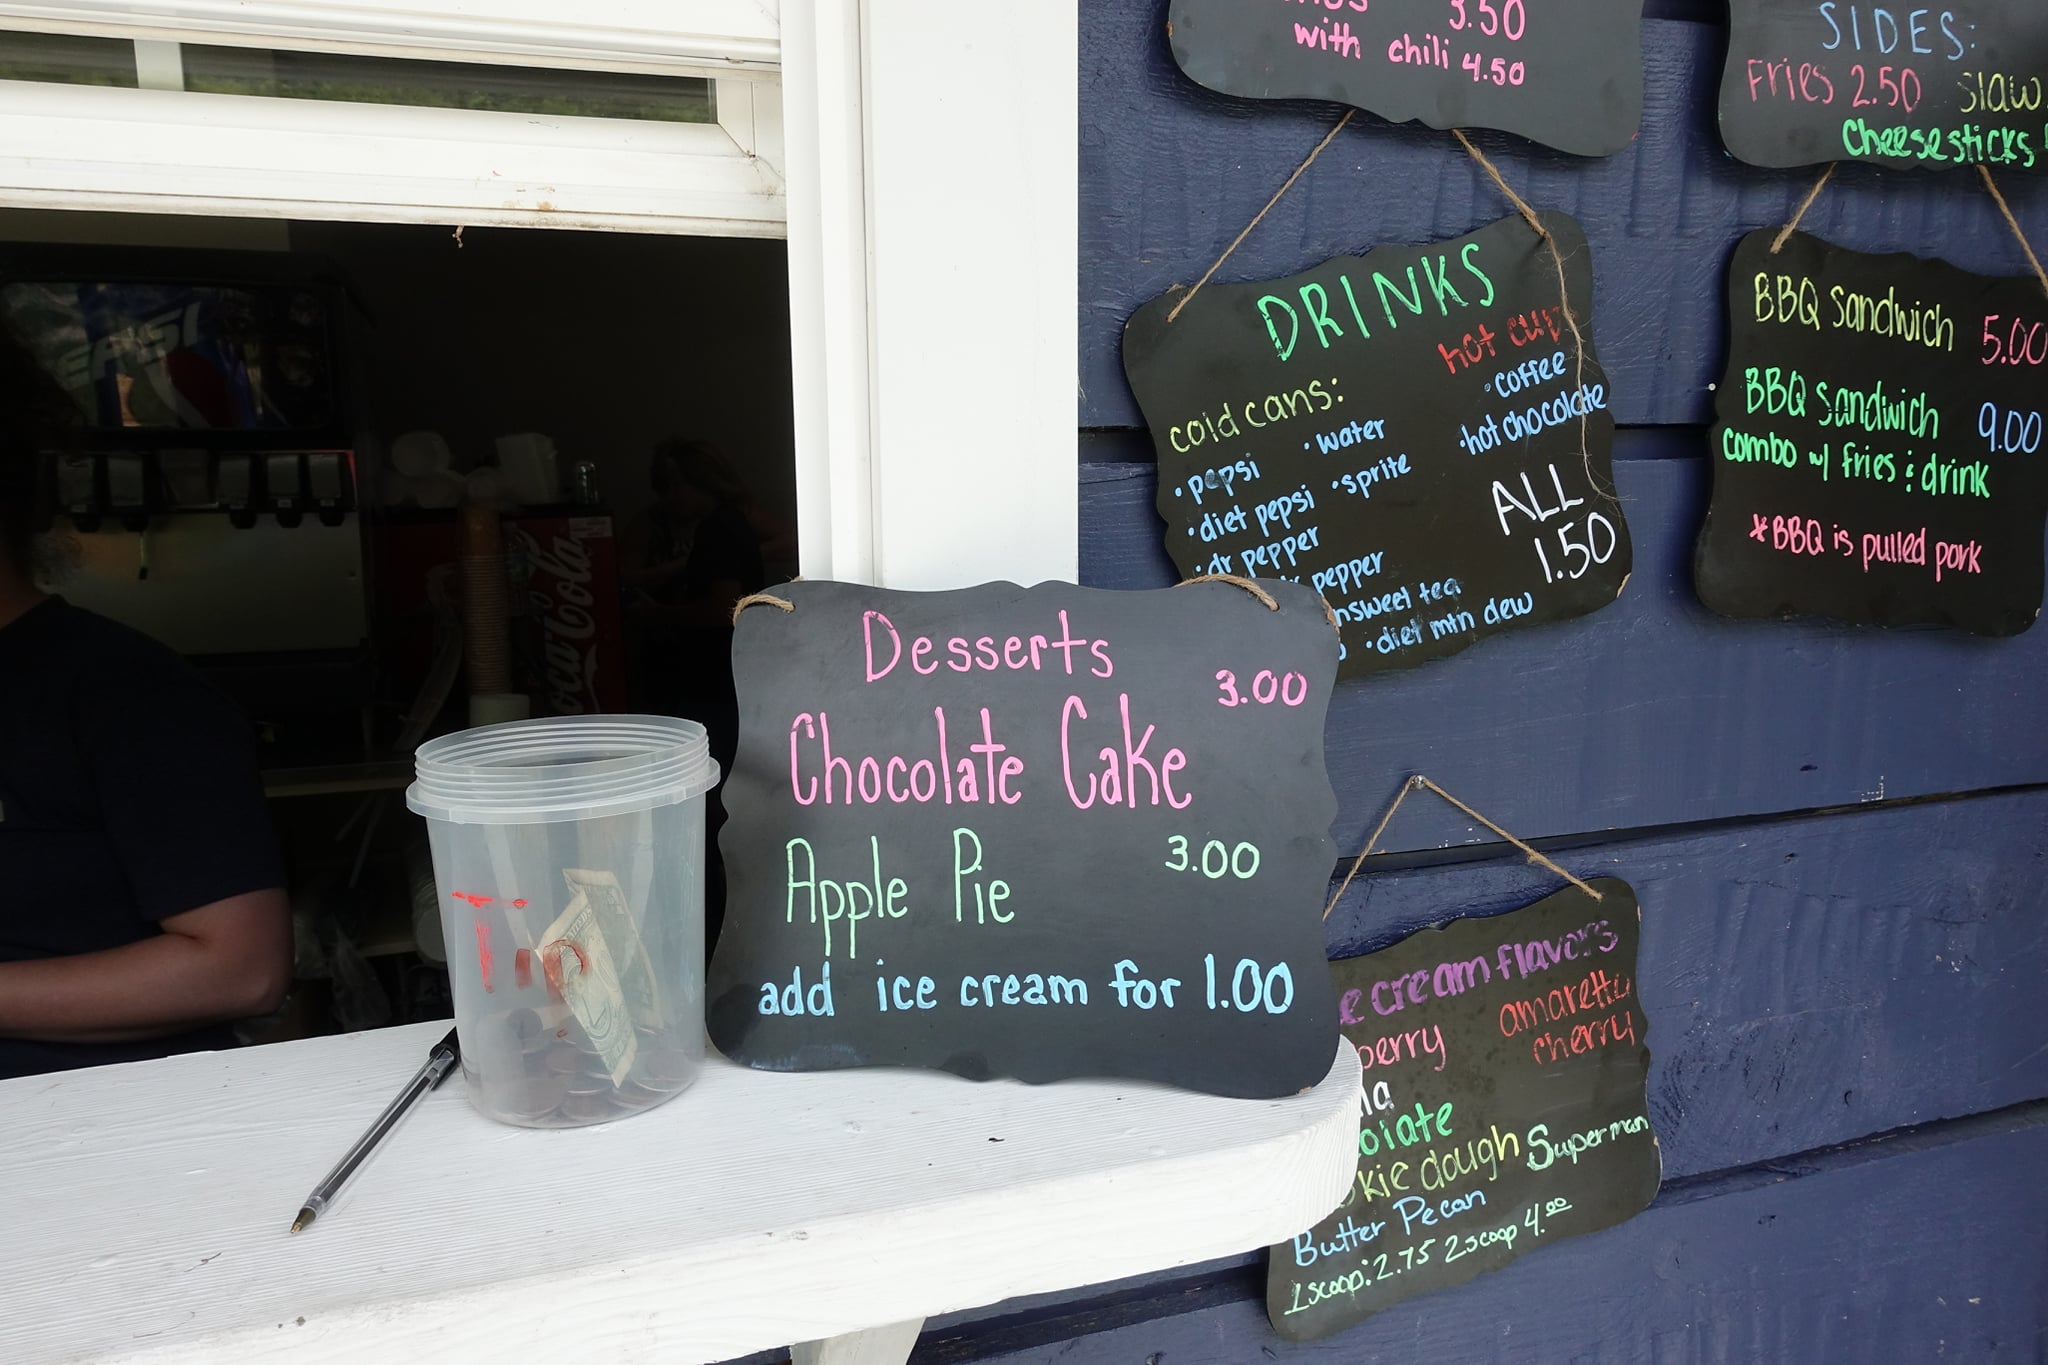 3.50
with chili 4.50
SIDES:
Fries 2.50 slaw
Cheesesticks
DRINKS
hot cup
cold cans:
• coffee
• pepsi • water
• hot chocolate
• diet pepsi • sprite
• dr pepper
pepper
ALL
1.50
nsweet tea
• diet mtn dew
BBQ Sandwich 5.00
BBQ Sandwich 9.00
combo w/ fries & drink
*BBQ is pulled pork
PEPSI
Coca-Cola
Desserts
Chocolate Cake 3.00
Apple Pie 3.00
add ice cream for 1.00
Tip
e cream flavors
berry amaretto
cherry
la
olate
kie dough Superman
Butter Pecan
1 scoop: 2.75 2 scoop 4.00